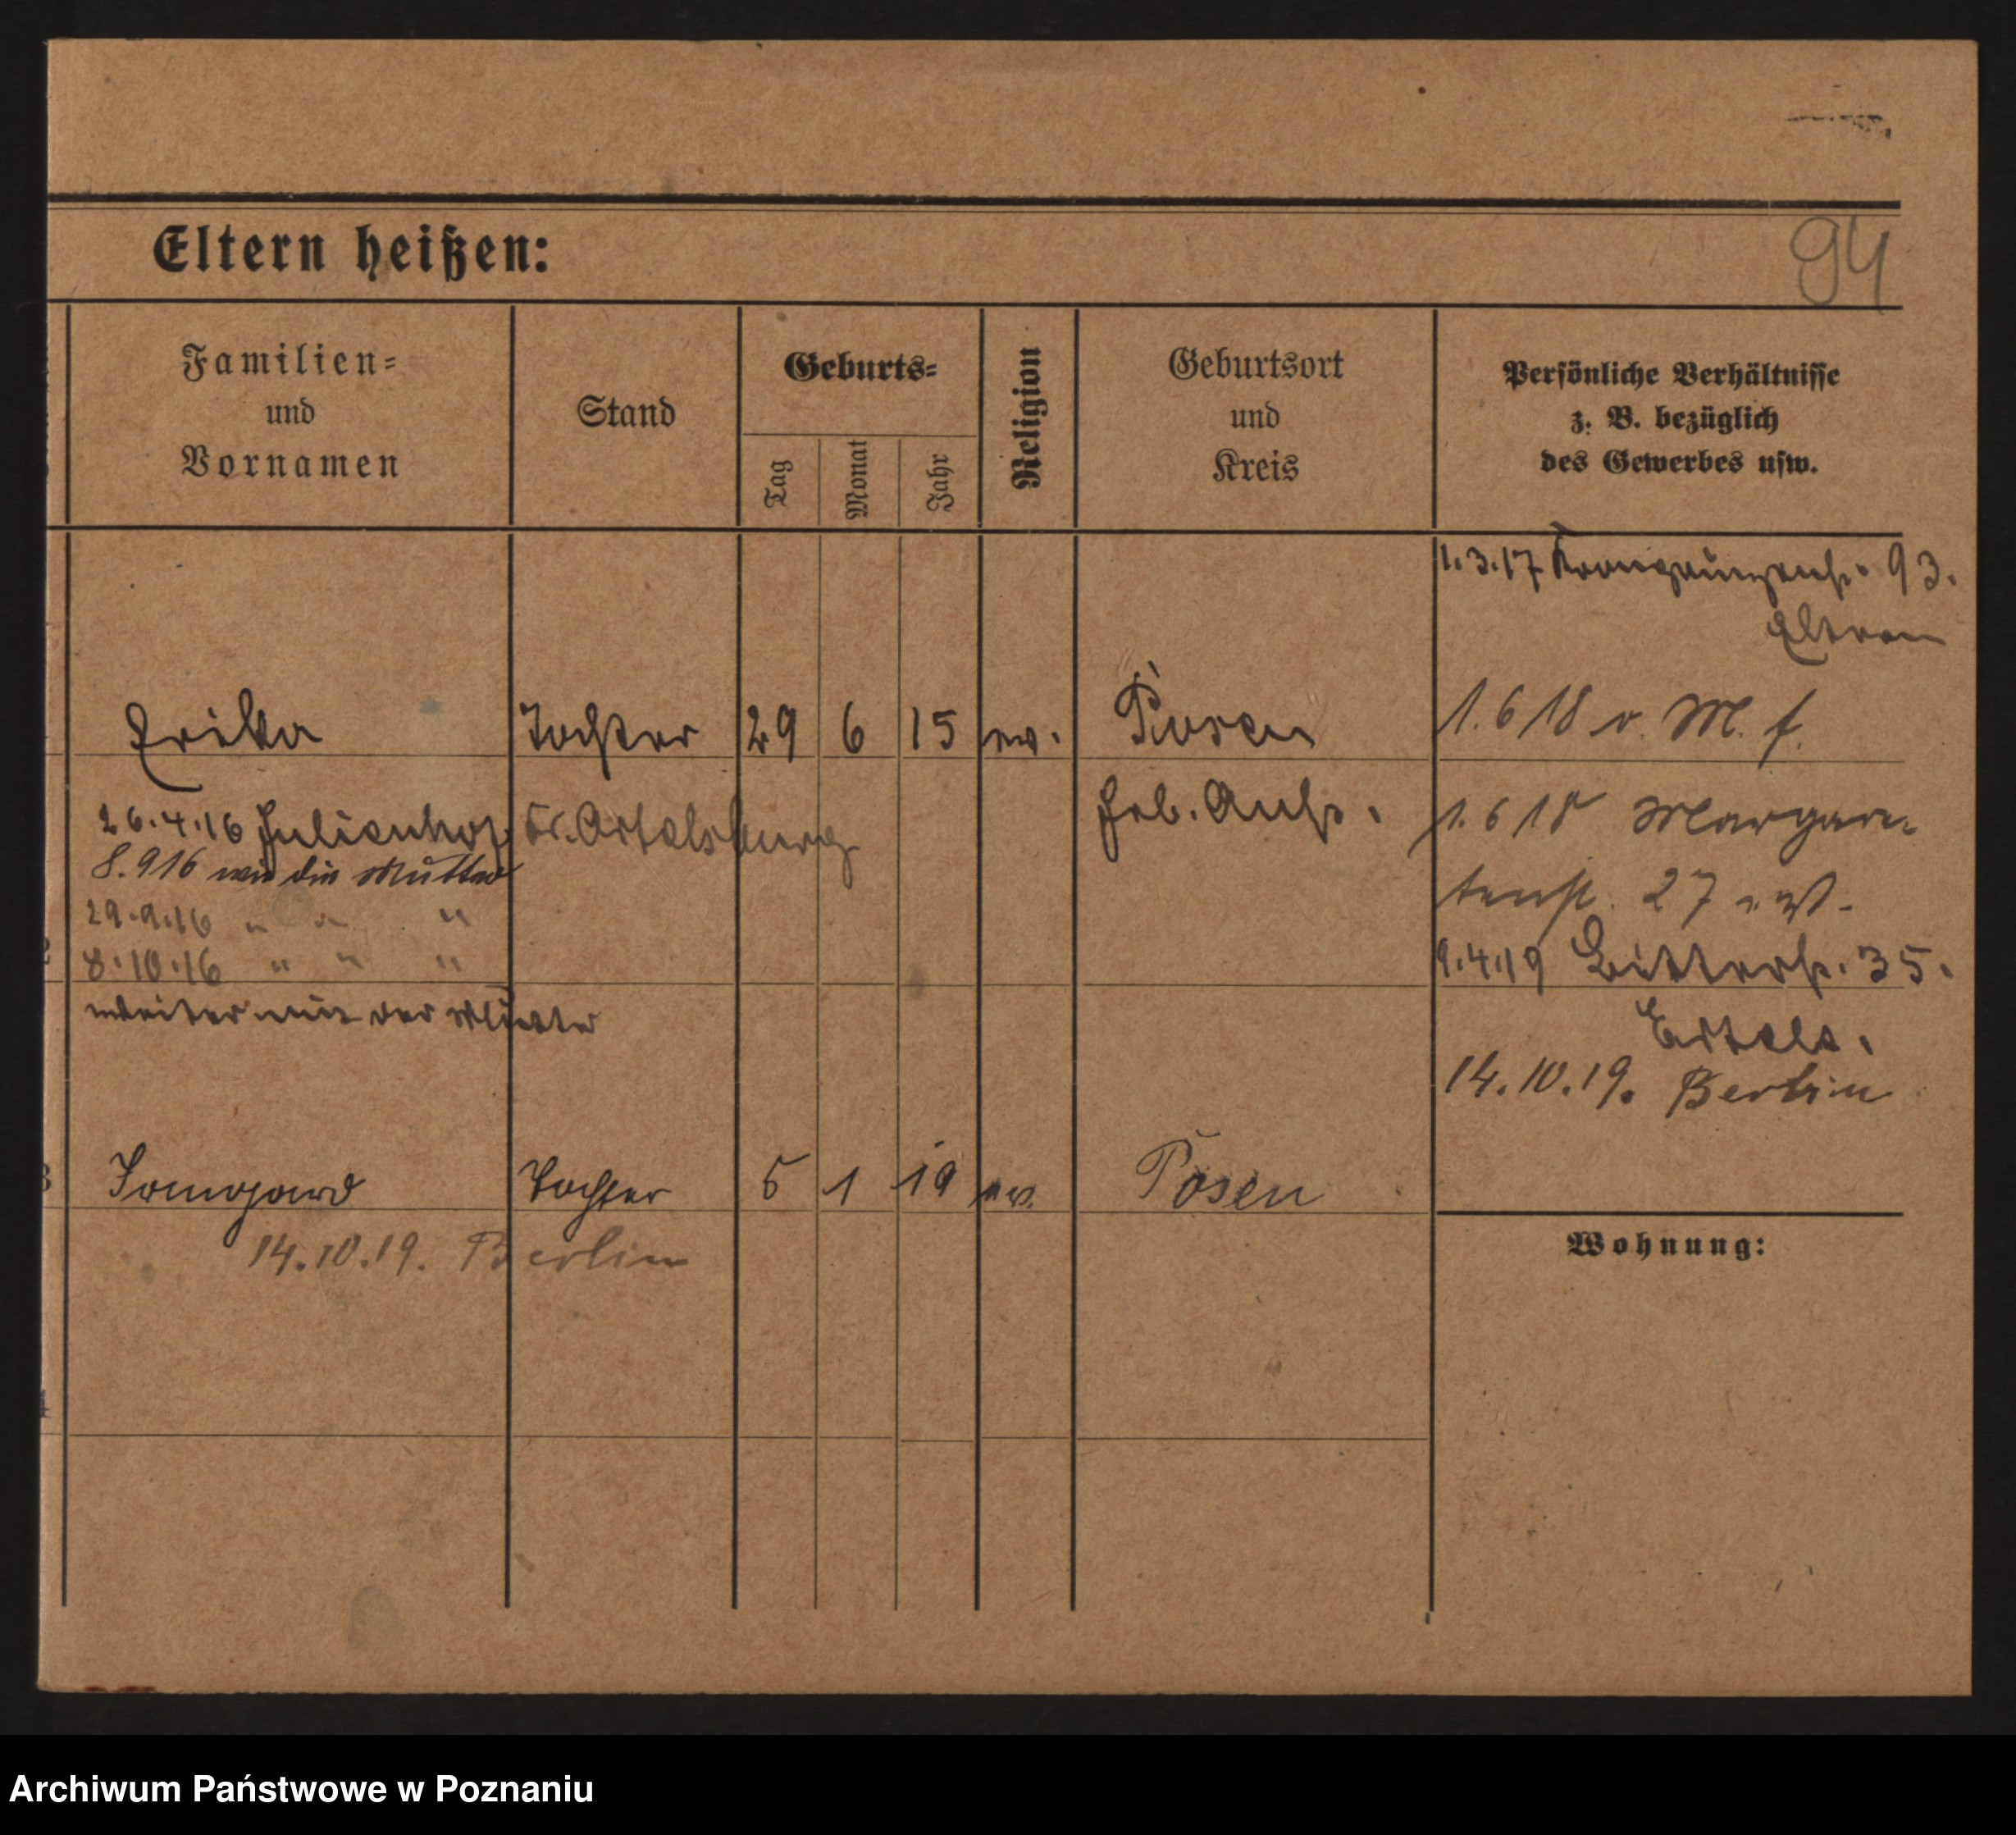 Eltern heißen:
94
Familien-
und
Vornamen
Stand
Geburts-
Tag
Monat
Jahr
Religion
Geburtsort
und
Kreis
Persönliche Verhältnisse
z. B. bezüglich
des Gewerbes usw.
1.3.17 Kronprinzenst. 93.
Eltern
Erika Tochter 29 6 15 ev. Posen
1.6 18 v. M. f.
26.4.16 Julienhof Kr. Ortelsburg
Geb. Anst.
1.6 18 Margare-
8.9 16 wie die Mutter
tenst. 27
29.9.16 " " "
8.10.16 " " "
9.4.19 Bitterst. 35.
weiter wie der Mutter
14.10.19. Berlin
3 Irmgard Tochter 5 1 19 ev. Posen
14.10.19. Berlin
Wohnung:
4
Archiwum Państwowe w Poznaniu